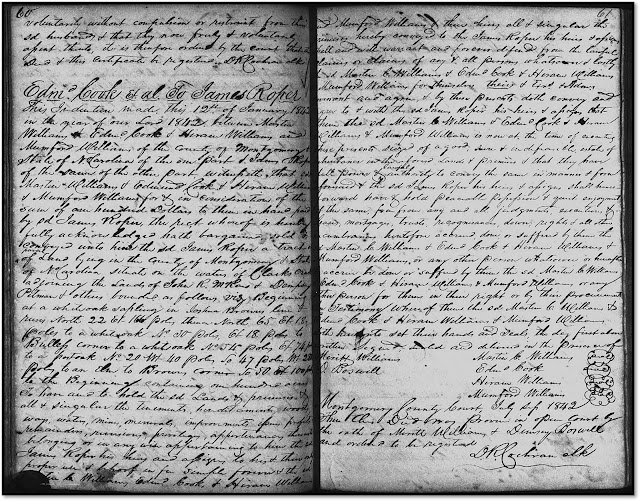 60
voluntarily without compulsion or restraint from the
sd husband & that they now freely & voluntarily
assent thereto, it is therefore ordered by the court that sd
Deed & this certificate be registered. D R Cochran clk
Edm. Cook & al. To James Roper
This Indenture made this 12th of January 1842
in the year of our Lord 1842 between Martin
Williams & Edmd Cook & Hiram Williams and
Mumford Williams of the county of Montgomery
State of N Carolina of the one part & James Roper
of the same of the other part witnesseth that sd
Martin Williams & Edmund Cook & Hiram Williams
& Mumford Williams for & in consideration of the
sum of one hundred Dollars to them in hand paid
by sd James Roper the receipt whereof is hereby
fully acknowledged hath bargained sold &
conveyed unto him the sd James Roper a tract
of Land lying in the county of Montgomery & State
of N Carolina situate on the waters of Clarks Creek
adjoining the Lands of John R. McRae & Dempsey
& others bounded as follows viz Beginning
at a white oak sapling in Joshua Browns line &
runs North 22 Et poles then North 65 Et 18
poles to a white oak No 30 poles Et 18 poles to
corner a white oak
to a post oak No 20 Wt 40 poles So 47 poles
poles to an elm Browns corner So 50 Et
to the Beginning containing one hundred acres
To have and to hold the sd Lands & premises &
all & singular the tenements hereditaments woods
ways, water, mines, minerals, improvements
reversions, remainders
belonging or in any wise appertaining to him the sd
James Roper his heirs and assigns to his & their
proper use & behoof in fee simple forever & the sd
Williams, Edmund Cook, & Hiram Williams
61
and Mumford Williams & their heirs all & singular the
premises hereby conveyed to the James Roper his heirs & assigns
shall and will warrant and forever defend from the lawful
claims or of any & all persons whatsoever & lastly
sd Martin C Williams & Edmd Cook & Hiram Williams
Mumford Williams for themselves their heirs
and agree & by these presents doth covenant
agree to & with the sd James Roper his heirs & assigns that
the sd Martin C. Williams & Edmd Cook & Hiram
Williams & Mumford Williams is now at the time of
these presents seized of a good sure & indefeasible estate of
inheritance in the aforesd Lands & premises & that they have
full power & authority to convey the same in manner & form
aforesd & the sd James Roper his heirs & assigns shall hence
forward have hold peaceably possess & quiet enjoyment
of the same free from any and all judgments, executions, &
mortgages, trusts, recognizances, dowry rights & all other
incumbrances heretofore done or suffered by them the
sd Martin C. Williams & Edmd Cook & Hiram Williams &
Mumford Williams, or any other person whatsoever or hereafter
accrue be done or suffered by them the sd Martin C Williams
Edmd Cook & Hiram Williams & Mumford Williams or any
other person for them in their right or by their procurement
In Testimony whereof them the sd Martin C. Williams &
Cook & Hiram Williams & Mumford Williams
hath hereunto set their hands and seals the day first above
written signed sealed and delivered in the presence of
Merritt Williams Martin C. Williams
D Boswell Edmd Cook
Hiram Williams
Mumford Williams
Montgomery County Court, July 1842
Then this Deed was proven in open Court by
the oath of Merritt Williams & Dempsey Boswell
and ordered to be registered
D. R. Cochran clk